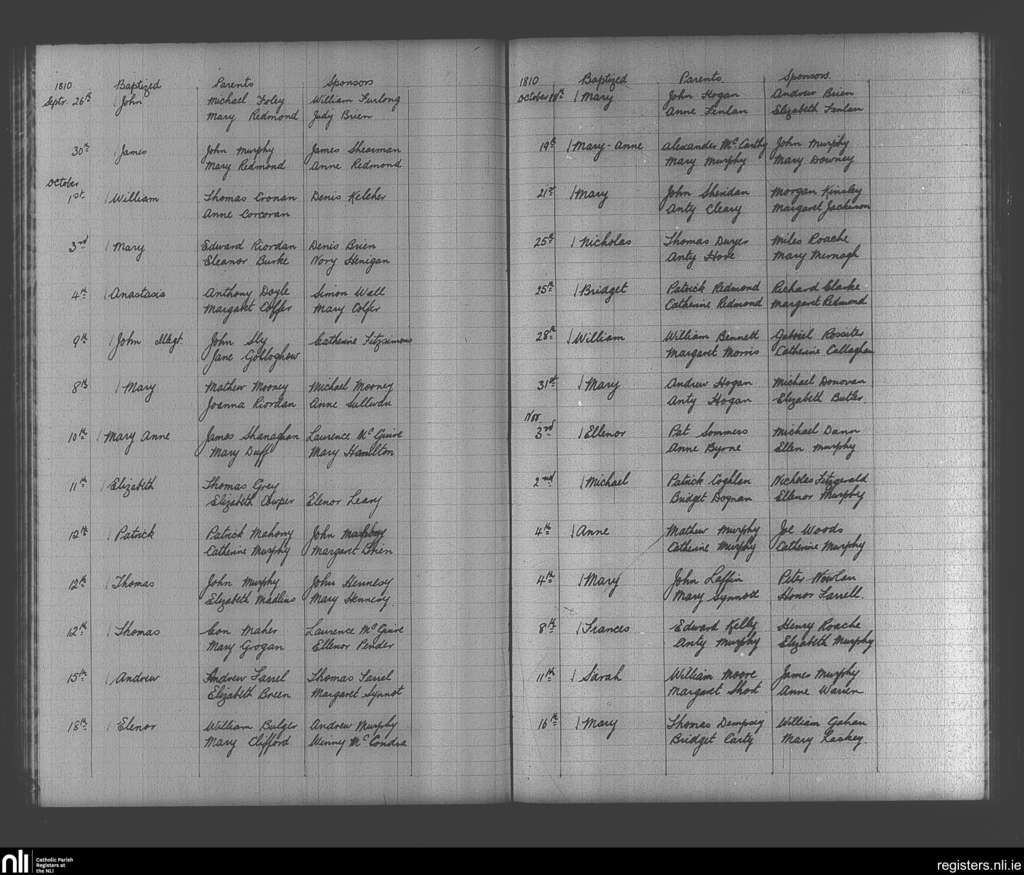 1810 Baptized Parents Sponsors
Septr 26th John Michael Foley William Furlong
Mary Redmond Judy Brien
30th James John Murphy James Shearman
Mary Redmond Anne Redmond
October
1st William Thomas Cronan Denis Keleher
Anne Corcoran
3rd Mary Edward Riordan Denis Brien
Eleanor Burke Nory Henegan
4th Anastasia Anthony Doyle Simon Wall
Margaret Colfer Mary Colfer
9th John Illegt. John Sly Catherine Fitzsimons
Jane
8th Mary Mathew Mooney Michael Mooney
Joanna Riordan Anne Sullivan
10th Mary Anne James Shanaghan Laurence McGuire
Mary Duff Mary Hamilton
11th Elizabeth Thomas Grey
Elizabeth Cowper Elenor Leary
12th Patrick Patrick Mahony John Mahony
Catherine Murphy Margaret
12th Thomas John Murphy John Hennesy
Elizabeth Madlins Mary Hennesy
12th Thomas Con Maher Laurence McGuire
Mary Grogan Ellenor Pender
15th Andrew Andrew Farrel Thomas Farrel
Elizabeth Breen Margaret Synnot
18th Elenor William Bulger Andrew Murphy
Mary Clifford Winny McCondra
1810 Baptized Parents Sponsors
October 18th Mary John Hogan Andrew Brien
Anne Fenlan Elizabeth Fenlan
19th Mary-Anne Alexander McCarthy John Murphy
Mary Murphy Mary Downey
21st Mary John Sheridan Morgan Kinsley
Anty Cleary Margaret Jackman
25th Nicholas Thomas Dwyer Miles Roache
Anty Hore Mary Murnagh
25th Bridget Patrick Redmond Richard Clarke
Catherine Redmond Margaret Redmond
28th William William Bennett Gabriel Rossiter
Margaret Morris Catherine Callaghan
31st Mary Andrew Hogan Michael Donovan
Anty Hogan Elizabeth Butler
Nov
3rd Ellenor Pat Sommers Michael Dann
Anne Byrne Ellen Murphy
2nd Michael Patrick Coghlan Nicholas Fitzgerald
Bridget Bognan Ellenor Murphy
4th Anne Mathew Murphy Joe Woods
Catherine Murphy Catherine Murphy
4th Mary John Laffin Peter Nowlan
Mary Synnott Honor Farrell
8th Frances Edward Kelly Henry Roache
Anty Murphy Elizabeth Murphy
11th Sarah William Moore James Murphy
Margaret Short Anne Warren
16th Mary Thomas Dempsey William Gahan
Bridget Carty Mary Laskey
nli Catholic Parish
Registers at
the NLI
registers.nli.ie